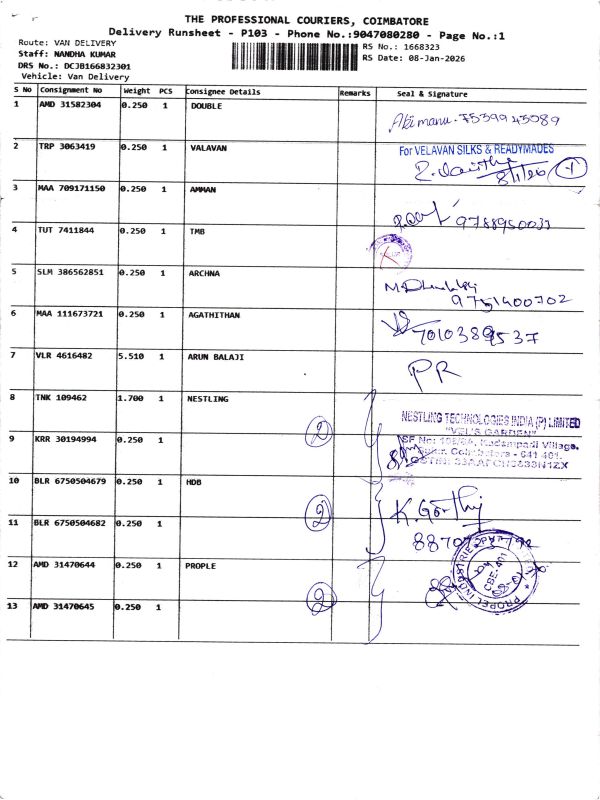 THE PROFESSIONAL COURIERS, COIMBATORE
Delivery Runsheet - P103 - Phone No.:9047080280 - Page No.:1
Route: VAN DELIVERY
Staff: NANDHA KUMAR
DRS No.: DCJB166832301
Vehicle: Van Delivery
RS No.: 1668323
RS Date: 08-Jan-2026
S No Consignment No Weight PCS Consignee Details Remarks Seal & Signature
1 AMD 31582304 0.250 1 DOUBLE
Abimanu. 7539945089
2 TRP 3063419 0.250 1 VALAVAN
For VELAVAN SILKS & READYMADES
8/1/26 1
3 MAA 709171150 0.250 1 AMMAN
9788950037
4 TUT 7411844 0.250 1 TMB
5 SLM 386562851 0.250 1 ARCHNA
9751400702
6 MAA 111673721 0.250 1 AGATHITHAN
7010389537
7 VLR 4616482 5.510 1 ARUN BALAJI
PR
8 TNK 109462 1.700 1 NESTLING
2
NESTLING TECHNOLOGIES INDIA (P) LIMITED
"VEL'S GARDEN"
SF No: Kadampadi Village,
Sulur, Coimbatore - 641 401.
9 KRR 30194994 0.250 1
10 BLR 6750504679 0.250 1 HDB
2
K. Gorthij
11 BLR 6750504682 0.250 1
12 AMD 31470644 0.250 1 PROPLE
2
PROPEL INDUSTRIES
CBE-401
13 AMD 31470645 0.250 1